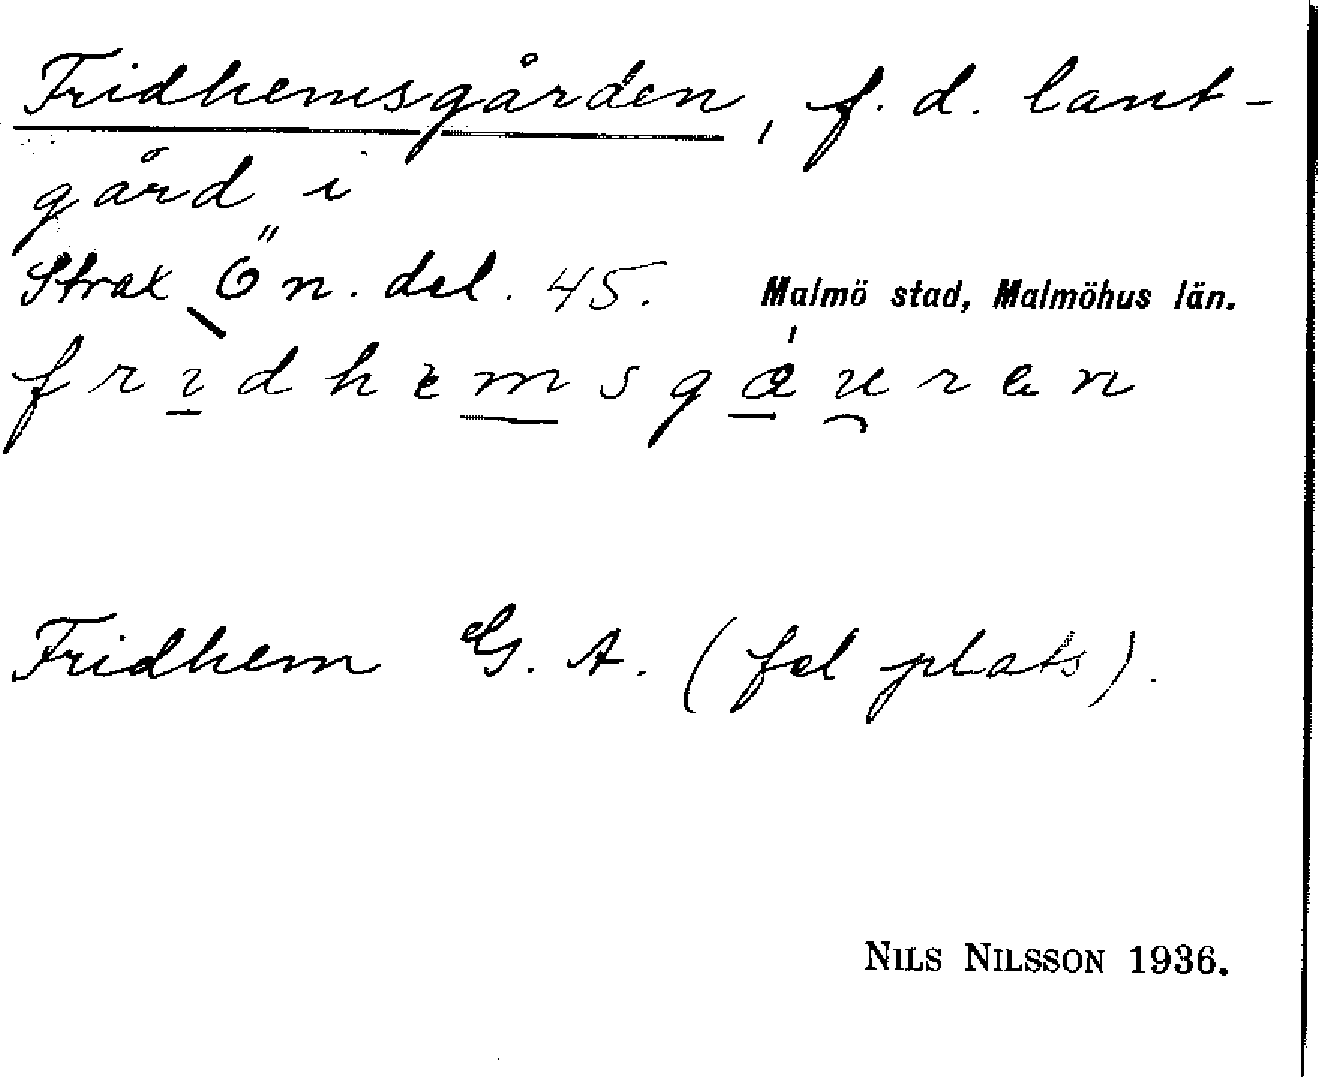 Fridhemsgården, f. d. lant-
gård i
Strax Ö n. del. 45. Malmö stad, Malmöhus län.
frıdhemsgæu̯ren
Fridhem G. A. (fel plats).
NILS NILSSON 1936.